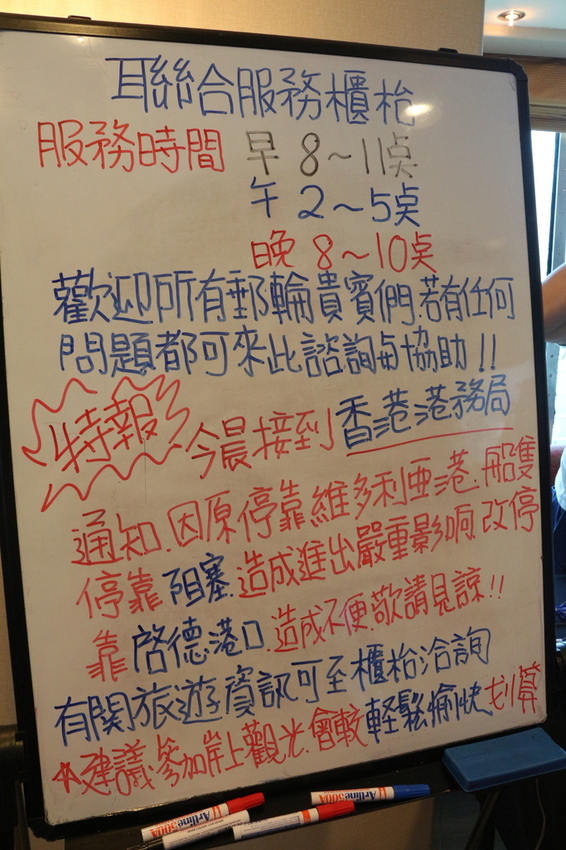 聯合服務櫃枱
服務時間 早 8～11点
午 2～5点
晚 8～10点
歡迎所有郵輪貴賓們.若有任何
問題都可來此諮詢与協助!!
特報 今晨接到香港港務局
通知.因原停靠維多利亞港.船隻
停靠阻塞.造成進出嚴重影响.改停
靠啓德港口.造成不便.敬請見諒!!
有關旅遊資訊可至櫃枱洽詢
☆建議參加岸上觀光.會較輕鬆愉快划算
Artline 500A
Artline 500A
Artline 500A